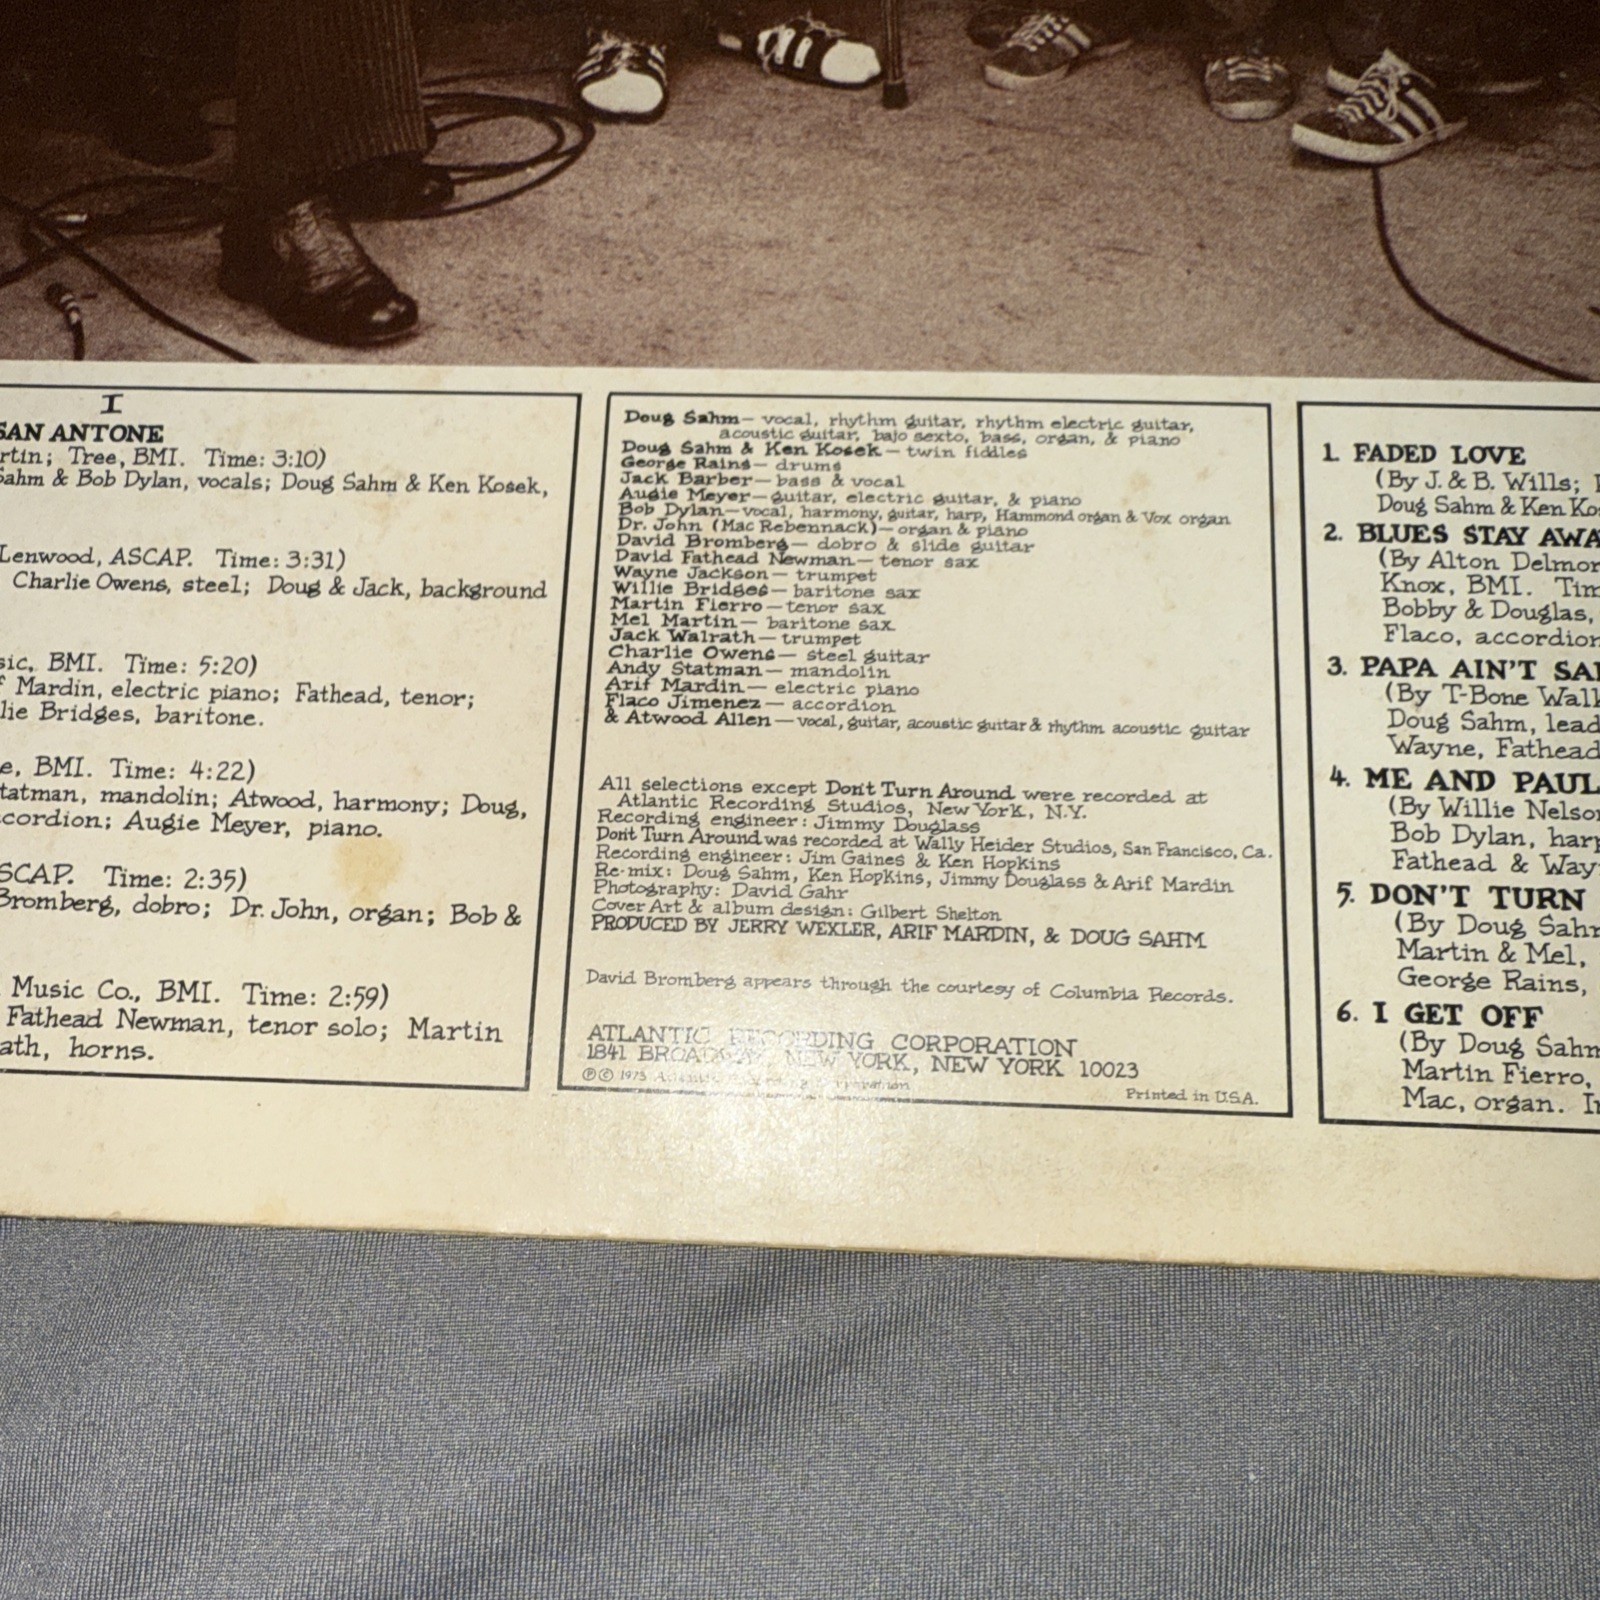 I
SAN ANTONE
rtin; Tree, BMI. Time: 3:10)
Sahm & Bob Dylan, vocals; Doug Sahm & Ken Kosek,
Lenwood, ASCAP. Time: 3:31)
Charlie Owens, steel; Doug & Jack, background
sic, BMI. Time: 5:20)
f Mardin, electric piano; Fathead, tenor;
lie Bridges, baritone.
e, BMI. Time: 4:22)
tatman, mandolin; Atwood, harmony; Doug,
ccordion; Augie Meyer, piano.
SCAP. Time: 2:35)
Bromberg, dobro; Dr. John, organ; Bob &
Music Co., BMI. Time: 2:59)
Fathead Newman, tenor solo; Martin
ath, horns.
Doug Sahm— vocal, rhythm guitar, rhythm electric guitar,
acoustic guitar, bajo sexto, bass, organ, & piano
Doug Sahm & Ken Kosek— twin fiddles
George Rains— drums
Jack Barber— bass & vocal
Augie Meyer—guitar, electric guitar, & piano
Bob Dylan—vocal, harmony, guitar, harp, Hammond organ & Vox organ
Dr. John (Mac Rebennack)— organ & piano
David Bromberg— dobro & slide guitar
David Fathead Newman— tenor sax
Wayne Jackson— trumpet
Willie Bridges— baritone sax
Martin Fierro— tenor sax
Mel Martin— baritone sax
Jack Walrath— trumpet
Charlie Owens— steel guitar
Andy Statman— mandolin
Arif Mardin— electric piano
Flaco Jimenez— accordion
& Atwood Allen— vocal, guitar, acoustic guitar & rhythm acoustic guitar
All selections except Don't Turn Around were recorded at
Atlantic Recording Studios, New York, N.Y.
Recording engineer: Jimmy Douglass
Don't Turn Around was recorded at Wally Heider Studios, San Francisco, Ca.
Recording engineer: Jim Gaines & Ken Hopkins
Re-mix: Doug Sahm, Ken Hopkins, Jimmy Douglass & Arif Mardin
Photography: David Gahr
Cover Art & album design: Gilbert Shelton
PRODUCED BY JERRY WEXLER, ARIF MARDIN, & DOUG SAHM
David Bromberg appears through the courtesy of Columbia Records.
ATLANTIC RECORDING CORPORATION
1841 BROADWAY, NEW YORK, NEW YORK 10023
℗ © 1973
Printed in U.S.A.
1. FADED LOVE
(By J. & B. Wills;
Doug Sahm & Ken Ko
2. BLUES STAY AWA
(By Alton Delmor
Knox, BMI. Tim
Bobby & Douglas,
Flaco, accordion
3. PAPA AIN'T SA
(By T-Bone Walk
Doug Sahm, lead
Wayne, Fathead
4. ME AND PAUL
(By Willie Nelson
Bob Dylan, harp
Fathead & Way
5. DON'T TURN
(By Doug Sahm
Martin & Mel,
George Rains,
6. I GET OFF
(By Doug Sahm
Martin Fierro,
Mac, organ. I